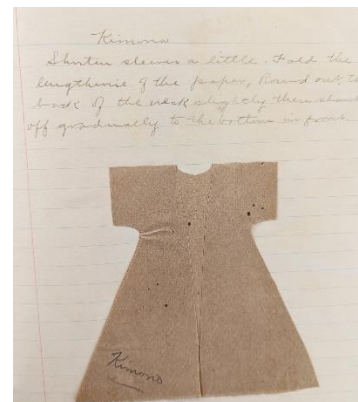 Kimono
Shorten sleeves a little. Fold the
lengthwise of the paper, Round out the
back of the neck slightly then
off gradually to the bottom in front
Kimono